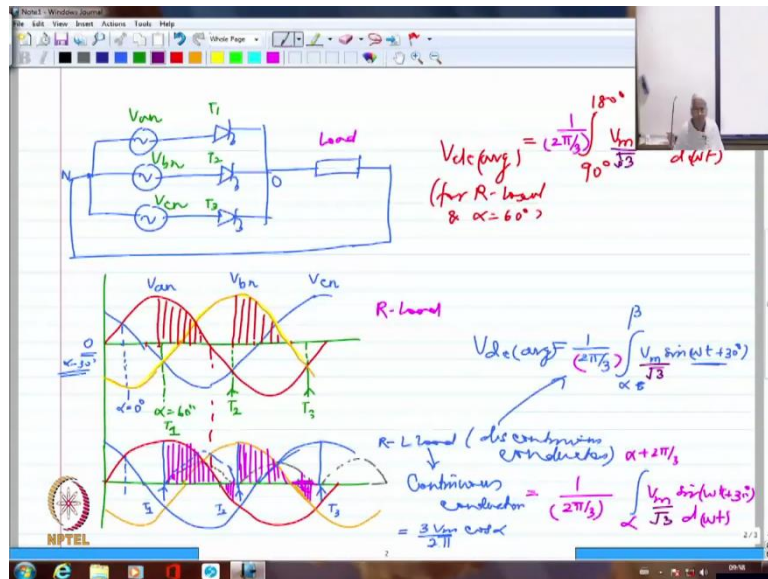 Note1 - Windows Journal
File Edit View Insert Actions Tools Help
Whole Page
Van
T1
Vbn
T2
Vcn
T3
N
O
Load
Vdc(avg) = 1/(2π/3) ∫ 90° 180° Vm/√3 d(ωt)
(for R-Load
& α=60°)
Van Vbn Vcn
R-Load
O
α=30°
α=0°
α=60°
T1
T2
T3
Vdc(avg) = 1/(2π/3) ∫ α β Vm/√3 sin(ωt+30°)
R-L Load (discontinuous
conduction)
Continuous
conduction = 1/(2π/3) ∫ α α+2π/3 Vm/√3 sin(ωt+30°) d(ωt)
= 3Vm/2π cosα
T3
NPTEL
2
2/2
09:18